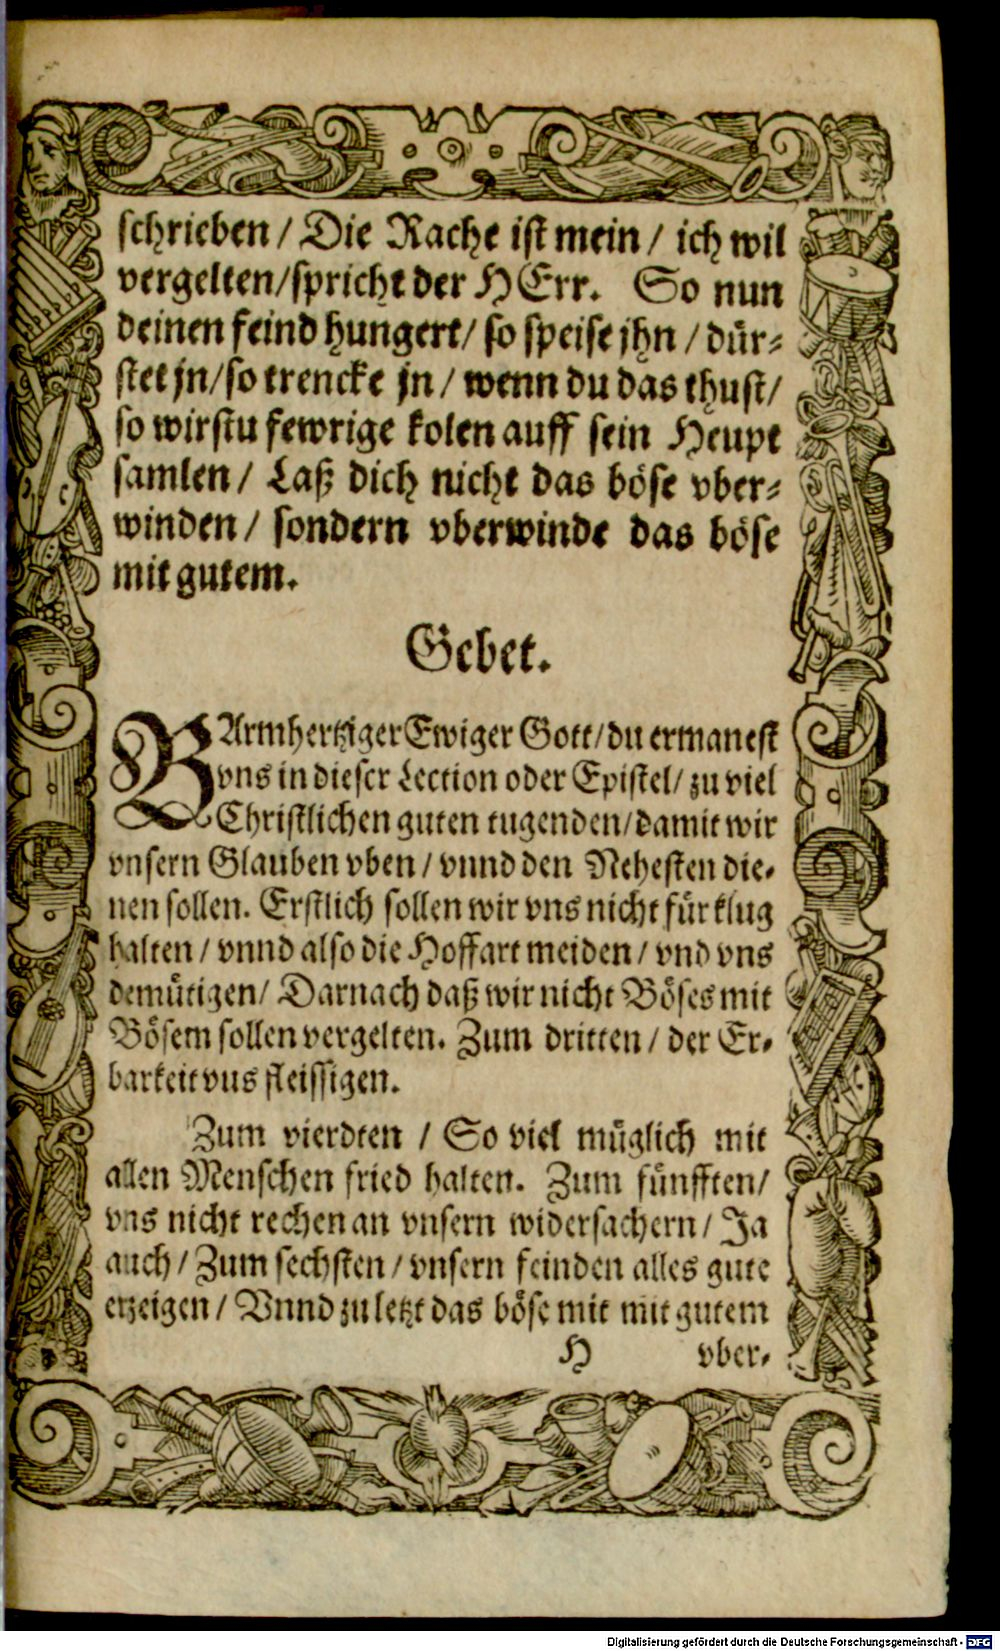 schrieben / Die Rache ist mein / ich wil
vergelten/spricht der HErr. So nun
deinen feind hungert/ so speise jhn / dür-
stet jn/so trencke jn / wenn du das thust/
so wirstu fewrige kolen auff sein Heupt
samlen / Laß dich nicht das böse vber-
winden / sondern vberwinde das böse
mit gutem.
Gebet.
BArmhertziger Ewiger Gott/du ermanest
vns in dieser Lection oder Epistel/ zu viel
Christlichen guten tugenden/damit wir
vnsern Glauben vben / vnnd den Nehesten die-
nen sollen. Erstlich sollen wir vns nicht für klug
halten / vnnd also die Hoffart meiden / vnd vns
demütigen/ Darnach daß wir nicht Böses mit
Bösem sollen vergelten. Zum dritten / der Er-
barkeit vus fleissigen.
Zum vierdten / So viel müglich mit
allen Menschen fried halten. Zum fünfften/
vns nicht rechen an vnsern widersachern / Ja
auch / Zum sechsten / vnsern feinden alles gute
erzeigen / Vnnd zu letzt das böse mit mit gutem
H vber-
Digitalisierung gefördert durch die Deutsche Forschungsgemeinschaft - DFG